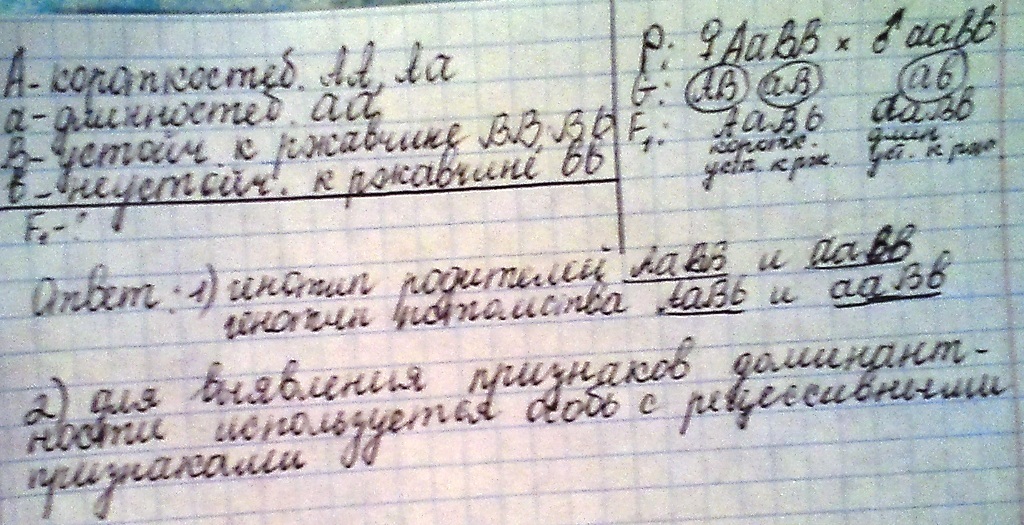 А - короткостеб. АА, Аа
а - длинностеб. аа
В - устойч. к ржавчине ВВ, Вв
в - неустойч. к ржавчине вв
F₁ - ?
Р: ♀ АаВВ × ♂ ааВВ
G: АВ аВ ав
F₁: АаВв ааВв
коротк. длин.
уст. к рж. уст. к рж.
Ответ: 1) генотип родителей АаВВ и ааВВ
генотип потомства АаВв и ааВв
2) для выявления признаков доминант-
ности используется особь с рецессивными
признаками